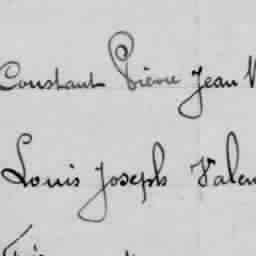 Constant Pierre Jean
Louis Joseph Valen